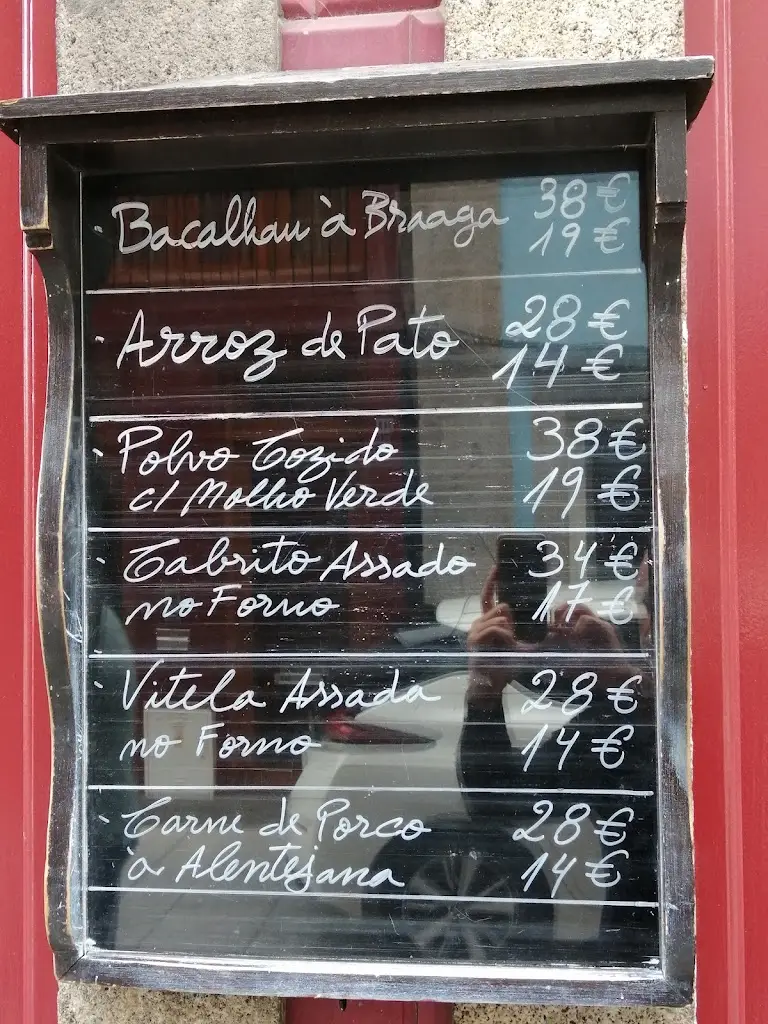 - Bacalhau à Braaga 38 €
19 €
- Arroz de Pato 28 €
14 €
- Polvo Cozido 38 €
c/ Molho Verde 19 €
- Cabrito Assado 34 €
no Forno 17 €
- Vitela Assada 28 €
no Forno 14 €
- Carne de Porco 28 €
à Alentejana 14 €